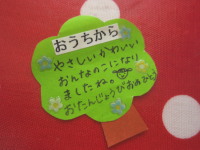 おうちから
やさしいかわいい
おんなのこになり
ましたね。
おたんじょうびおめでとう